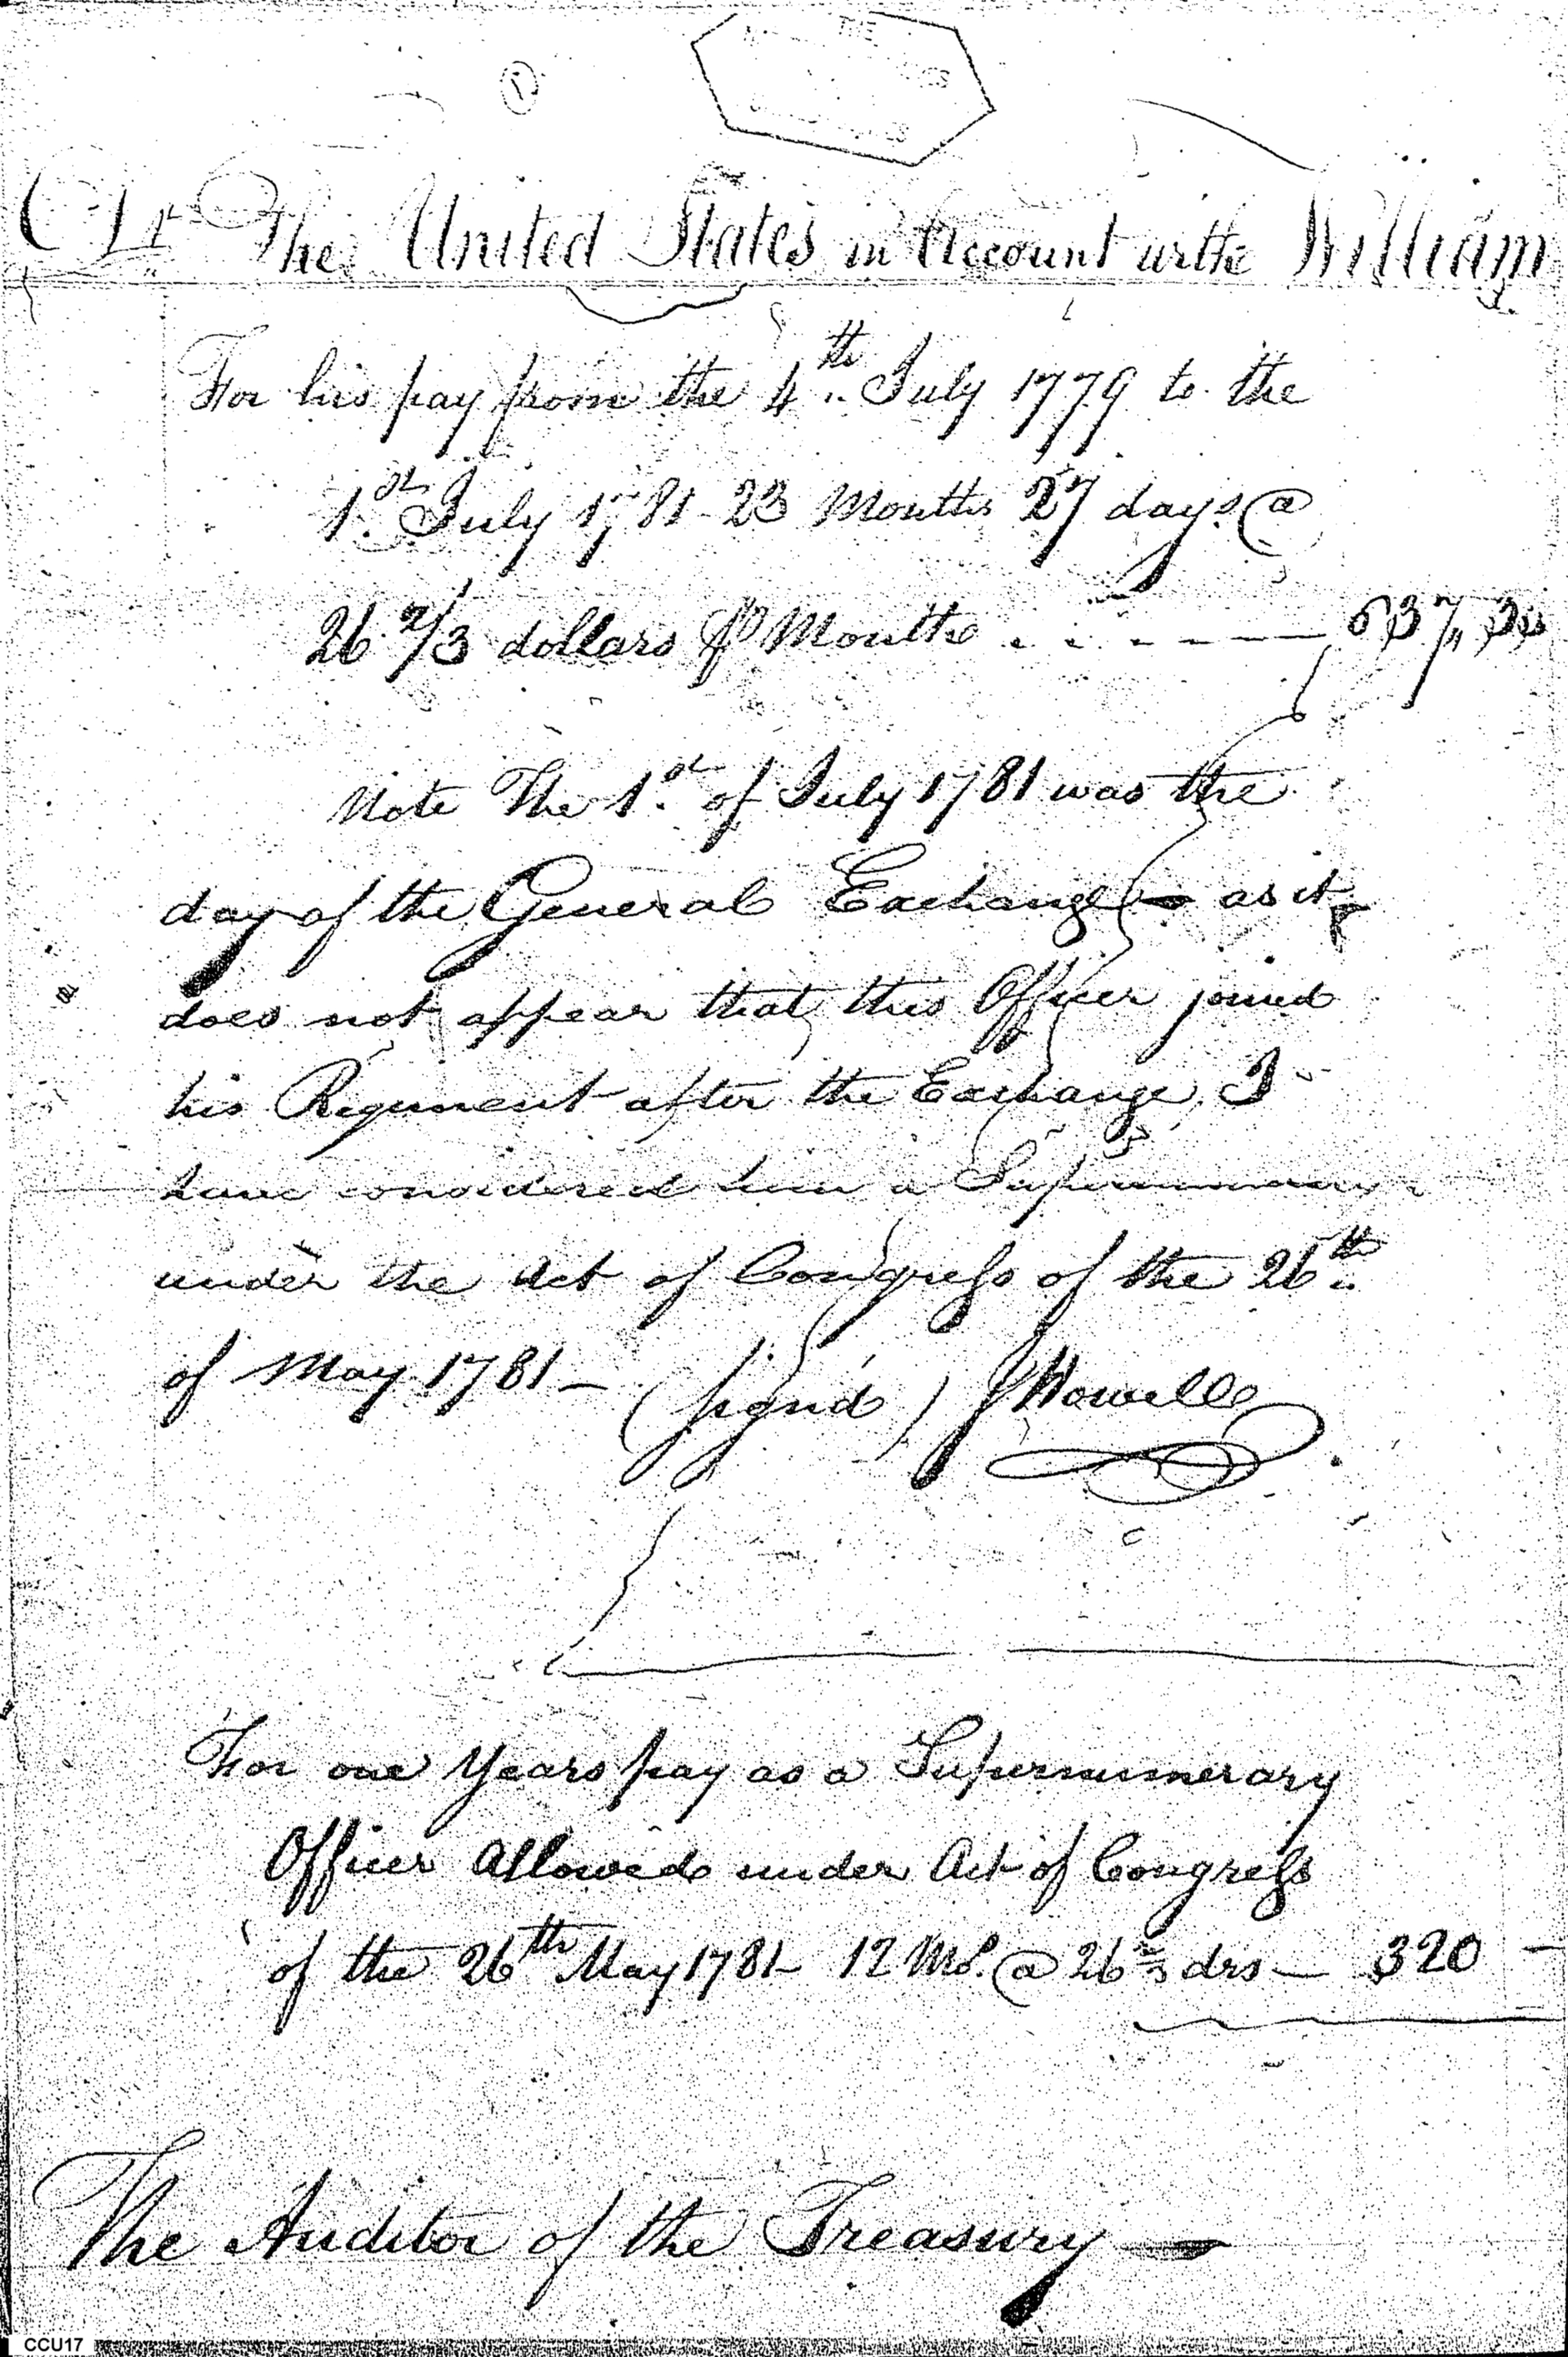 The United States in Account withe William
For his pay from the 4th July 1779 to the
1st July 1781 23 Months 27 days @
26 2/3 dollars ⅌ Monthe . . - - — 637,,
Note The 1st of July 1781 was the
day of the General Exchange — as it
does not appear that this Officer joined
his Regiment after the Exchange, I
have considered him a Supernumerary
under the Act of Congress of the 26th
of May 1781 — (signd) J Howell
For one Years pay as a Supernumerary
Officer Allowed under Act of Congress
of the 26th May 1781 — 12 Mos. @ 26 2/3 drs — 320 —
The Auditor of the Treasury —
CCU17